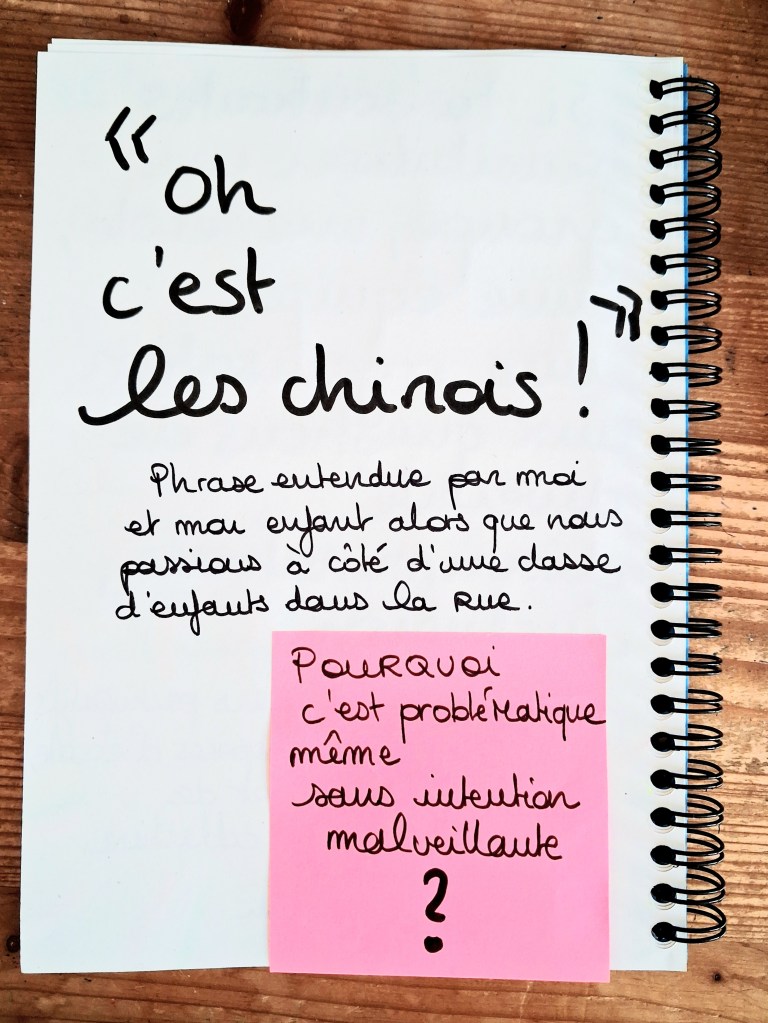 « Oh
c'est
les chinois ! »
Phrase entendue par moi
et mon enfant alors que nous
passions à côté d'une classe
d'enfants dans la rue.
POURQUOI
c'est problématique
même
sans intention
malveillante
?